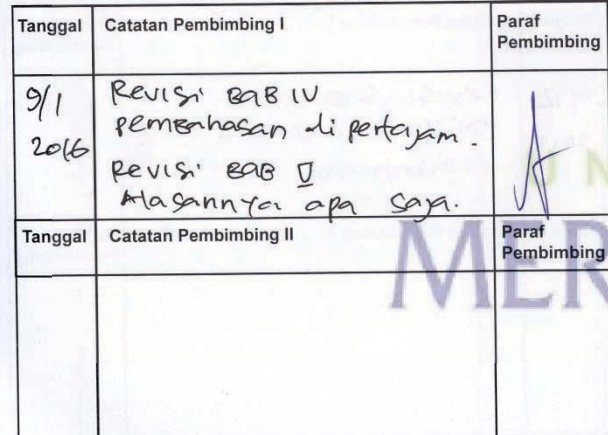 Tanggal Catatan Pembimbing I Paraf Pembimbing
9/1 2016
Revisi BAB IV
pembahasan dipertajam.
Revisi BAB V
Alasannya apa saja.
Tanggal Catatan Pembimbing II Paraf Pembimbing
U N
MER